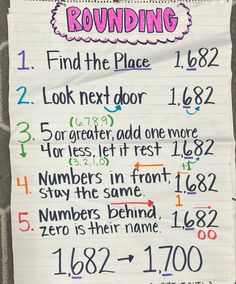 ROUNDING
1. Find the Place 1,682
2. Look next door 1,682
(6,7,8,9)
3. 5 or greater, add one more
4 or less, let it rest 1,682
(3,2,1,0)
+1
4. Numbers in front, 1,682
stay the same. 1
5. Numbers behind, 1,682
zero is their name. 00
1,682 → 1,700